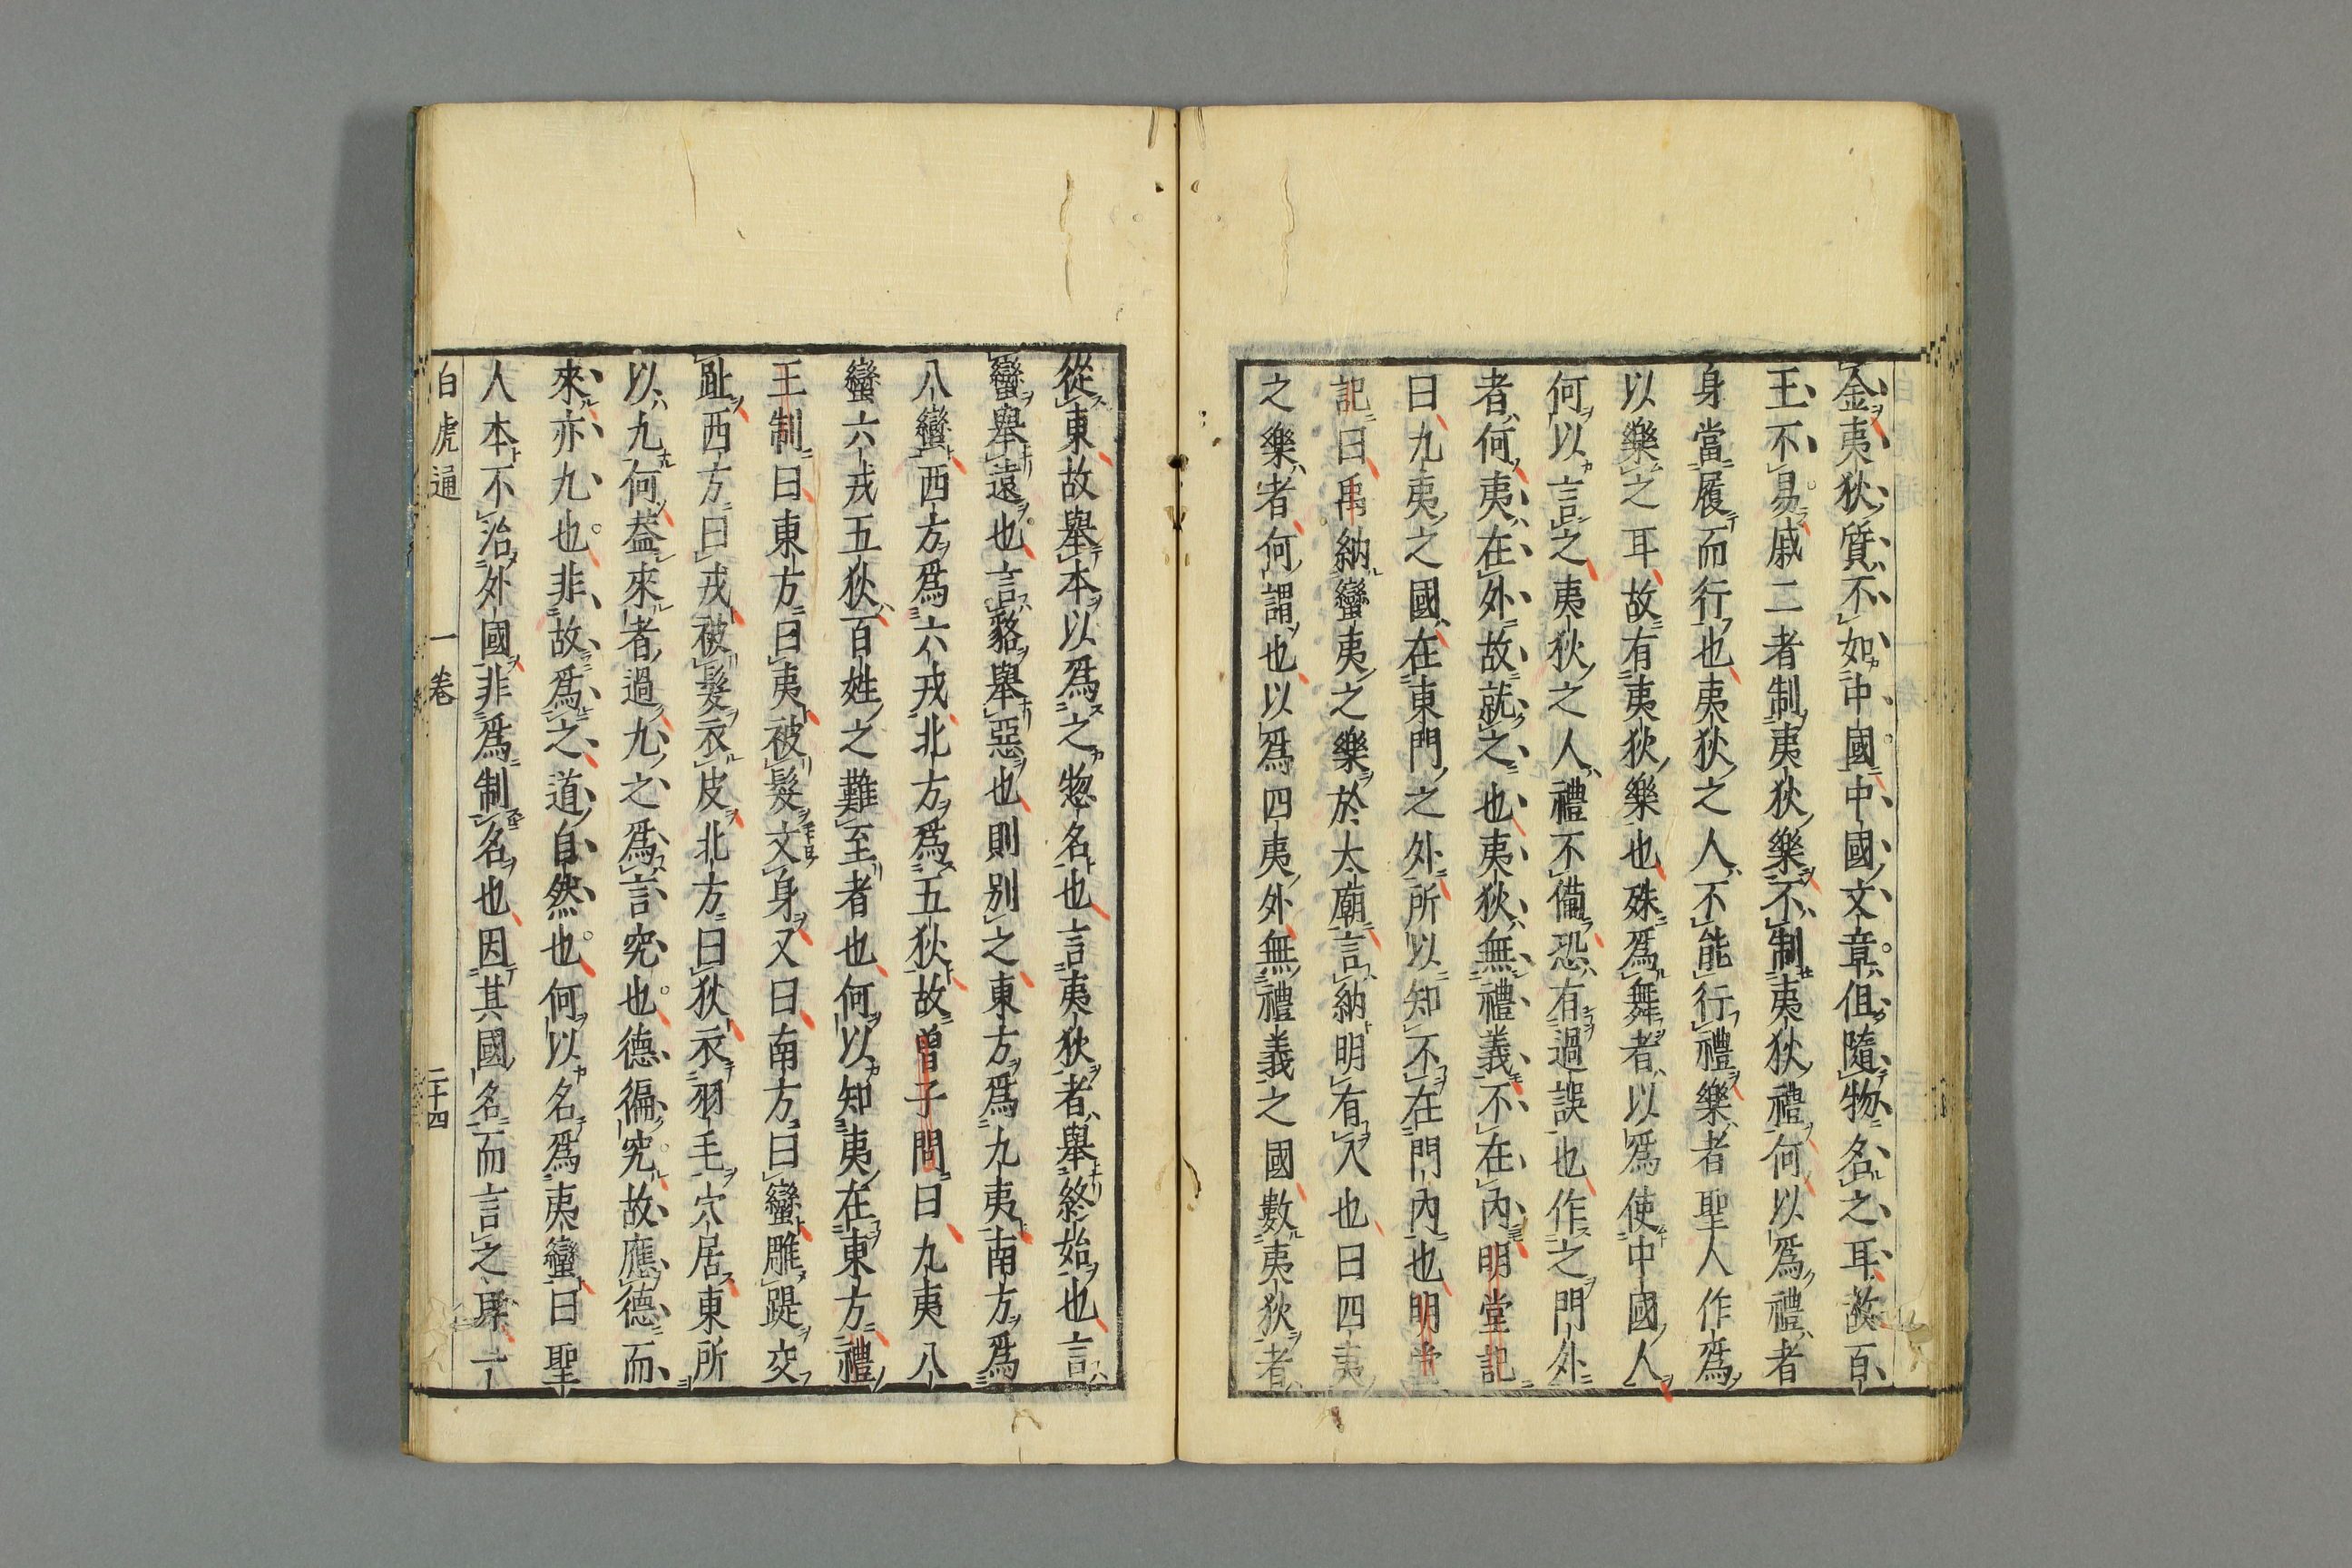 金夷狄質不如中國中國文章但隨物名之耳故百
王不易戚二者制夷狄樂不制夷狄禮何以爲禮者
身當履而行也夷狄之人不能行禮樂者聖人作爲
以樂之耳故有夷狄樂也殊爲舞者以爲使中國人
何以言之夷狄之人禮不備恐有過誤也作之門外
者何夷在外故就之也夷狄無禮義不在內明堂記
曰九夷之國在東門之外所以知不在門內也明堂
記曰禹納蠻夷之樂於太廟言納明有入也曰四夷
之樂者何謂也以爲四夷外無禮義之國數夷狄者
從東故舉本以爲之惣名也言夷狄者舉終始也言
蠻舉遠也言貉舉惡也則別之東方爲九夷南方爲
八蠻西方爲六戎北方爲五狄故曾子問曰九夷八
蠻六戎五狄百姓之難至者也何以知夷在東方禮
王制曰東方曰夷被髮文身又曰南方曰蠻雕踶交
趾西方曰戎被髮衣皮北方曰狄衣羽毛穴居東所
以九何葢來者過九之爲言究也德徧究故應德而
來亦九也非故爲之道自然也何以名爲夷蠻曰聖
人本不治外國非爲制名也因其國名而言之耳一
白虎通 一卷 二十四